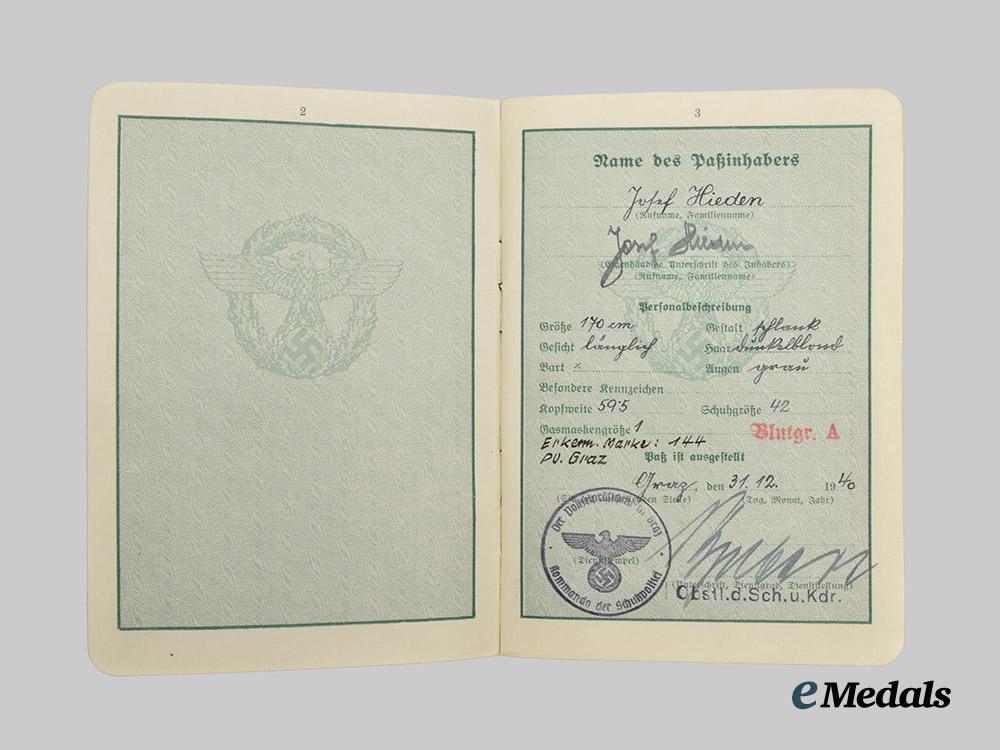 2
3
Name des Paßinhabers
Josef Hieden
(Rufname, Familienname)
Josef Hieden
(Eigenhändige Unterschrift des Inhabers)
(Rufname, Familienname)
Personalbeschreibung
Größe 170 cm Gestalt schlank
Gesicht länglich Haar dunkelblond
Bart Augen grau
Besondere Kennzeichen
Kopfweite 59·5 Schuhgröße 42
Gasmaskengröße 1 Blutgr. A
Erkenn. Marke: 144
PV. Graz Paß ist ausgestellt
Graz, den 31.12. 1940
(Tag, Monat, Jahr)
Der Polizeipräsident in Graz
(Dienststempel)
Kommando der Schutzpolizei
(Unterschrift, Dienstgrad, Dienststellung)
Obstl.d.Sch.u.Kdr.
eMedals